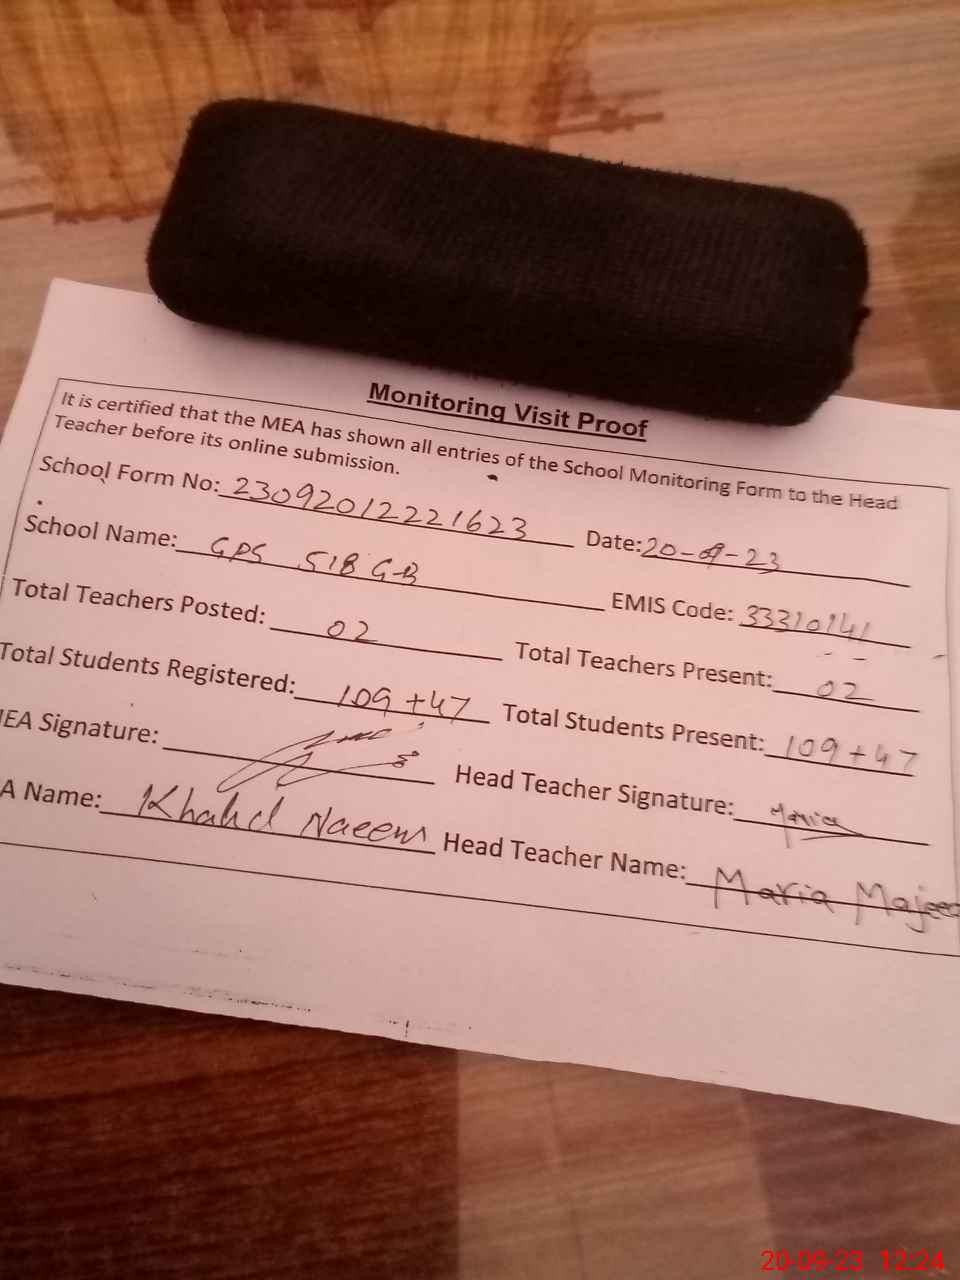 Monitoring Visit Proof
It is certified that the MEA has shown all entries of the School Monitoring Form to the Head
Teacher before its online submission.
School Form No: 23092012221623 Date: 20-09-23
School Name: GPS 518 GB EMIS Code: 33310141
Total Teachers Posted: 02 Total Teachers Present: 02
Total Students Registered: 109+47 Total Students Present: 109+47
EA Signature: Head Teacher Signature: Maria
A Name: Khalid Naeem Head Teacher Name: Maria Majeed
20-09-23 12:24